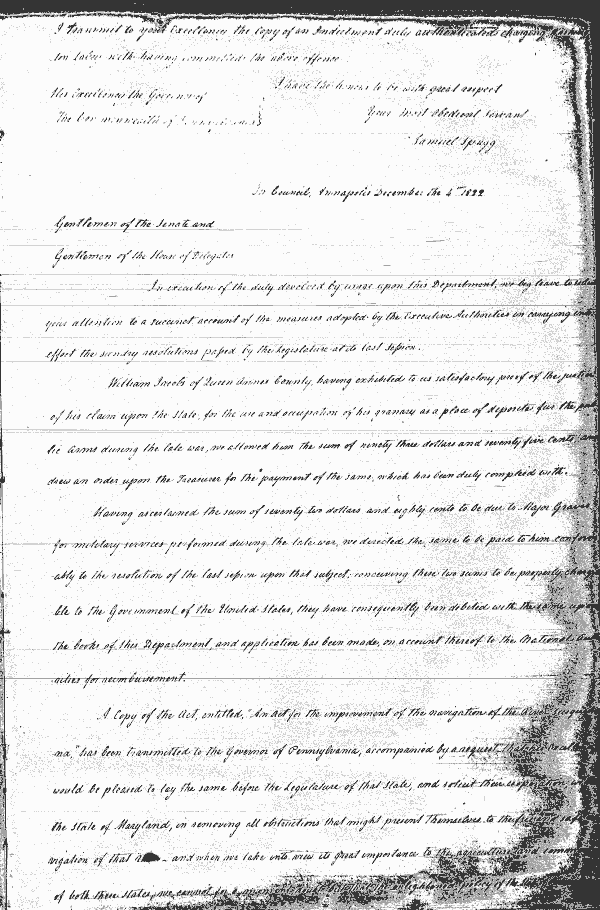 I transmit to your Excellency the Copy of an Indictment duly authenticated charging
with having committed the above offence
I have the honor to be with great respect
His Excellency the Governor of
Your Most Obedient Servant
The Commonwealth of Pennsylvania
Samuel Sprigg
In Council, Annapolis December the 4th 1822
Gentlemen of the Senate and
Gentlemen of the House of Delegates
In execution of the duty devolved by usage upon this Department, we beg leave to
your attention to a succinct account of the measures adopted by the Executive Authorities in carrying into
effect the sundry resolutions passed by the Legislature at its last Session.
William Jacobs of Queen Annes County, having exhibited to us satisfactory proof of the justice
of his claim upon the State, for the use and occupation of his granary as a place of deposite for the pub
lic Arms during the late war, we allowed him the sum of ninety three dollars and seventy five Cents, and
drew an order upon the Treasurer for the payment of the same, which has been duly complied with.
Having ascertained the sum of seventy two dollars and eighty cents to be due to Major Graves
for military services performed during the late war, we directed the same to be paid to him conform
ably to the resolution of the last session upon that subject: conceiving these two sums to be properly charge
ble to the Government of the United States, they have consequently been debited with the same upon
the books of this Department, and application has been made, on account thereof to the National Au
rities for reimbursement.
A Copy of the Act, entitled, "An act for the improvement of the navigation of the River
na," has been transmitted to the Governor of Pennsylvania, accompanied by a request that
would be pleased to lay the same before the Legislature of that State, and solicit their cooperation
the State of Maryland, in removing all obstructions that might present themselves to the
vigation of that - and when we take into view its great importance to the agriculture and
of both these states, we cannot for a moment enlightened policy of the